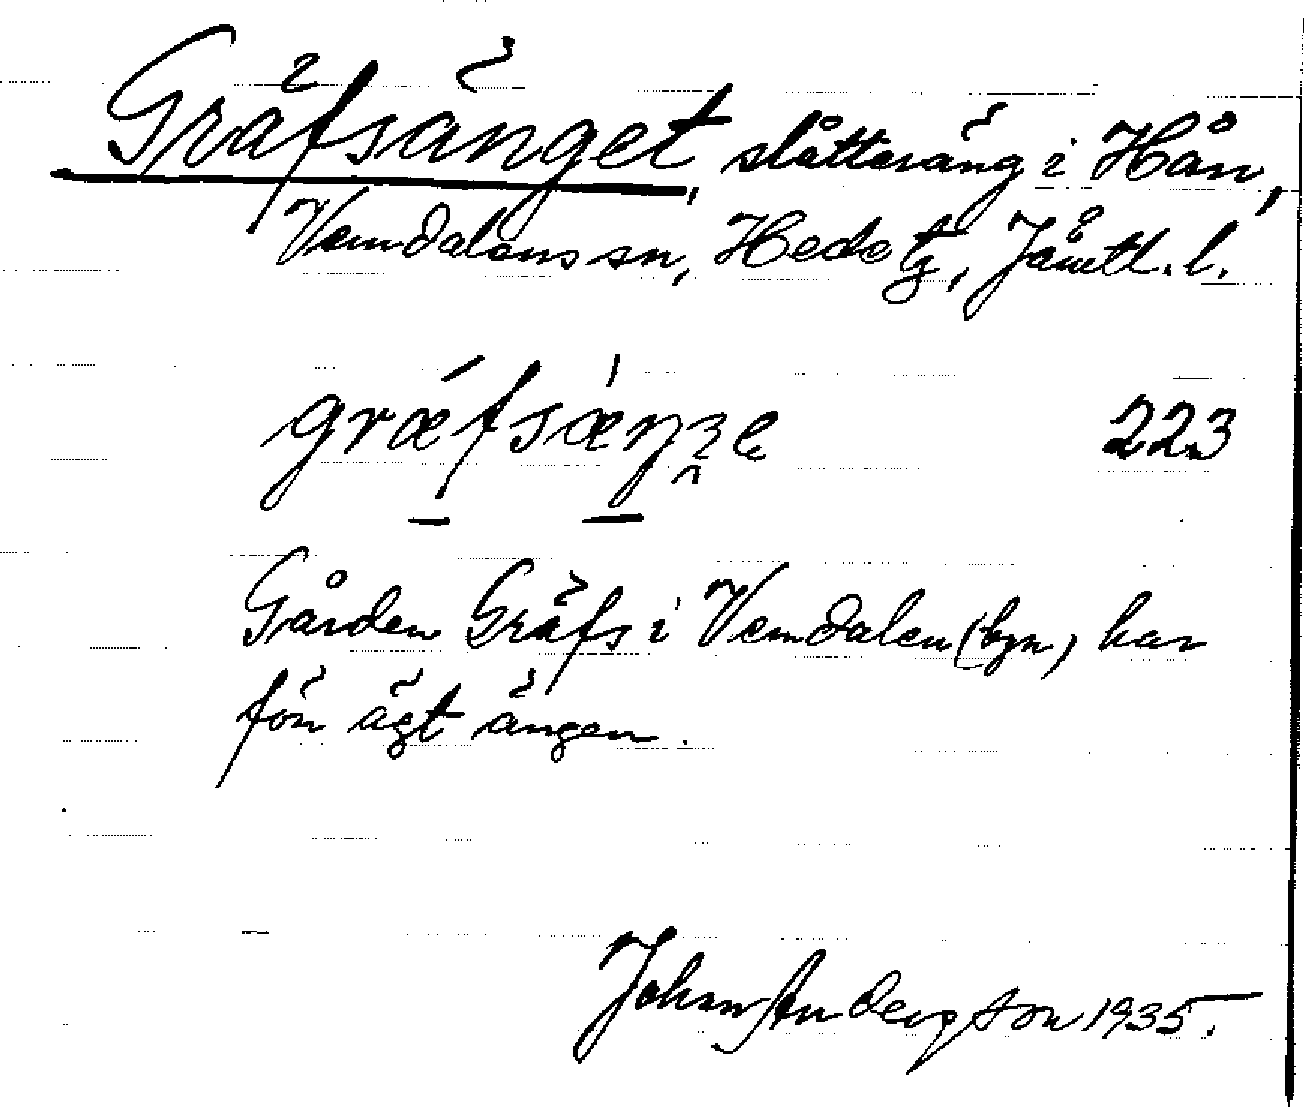 Gräfsänget, slåtteräng i Hån,
Vemdalens sn, Hede tg, Jämtl. l.
græ´fsæ´ŋʒe 223
Gården Gräfs i Vemdalen (byn) har
förr ägt ängen.
Johan Andersson 1935.